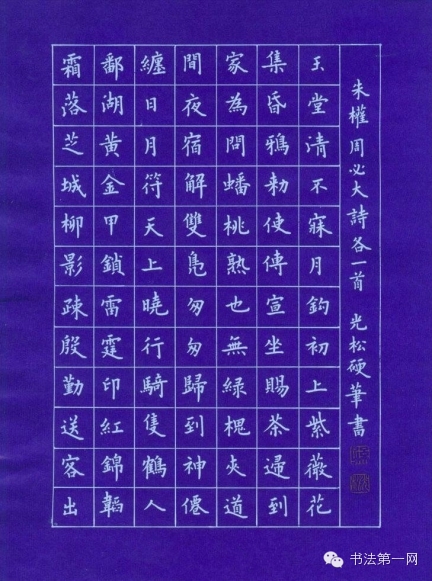 霜落芝城柳影疎殷勤送客出
鄱湖黃金甲鎖雷霆印紅錦韜
纏日月符天上曉行騎隻鶴人
間夜宿解雙鳧匆匆歸到神僊
家為問蟠桃熟也無綠槐夾道
集昏鴉勅使傳宣坐賜茶歸到
玉堂清不寐月鉤初上紫薇花
朱權周必大詩各一首 光松硬筆書
书法第一网